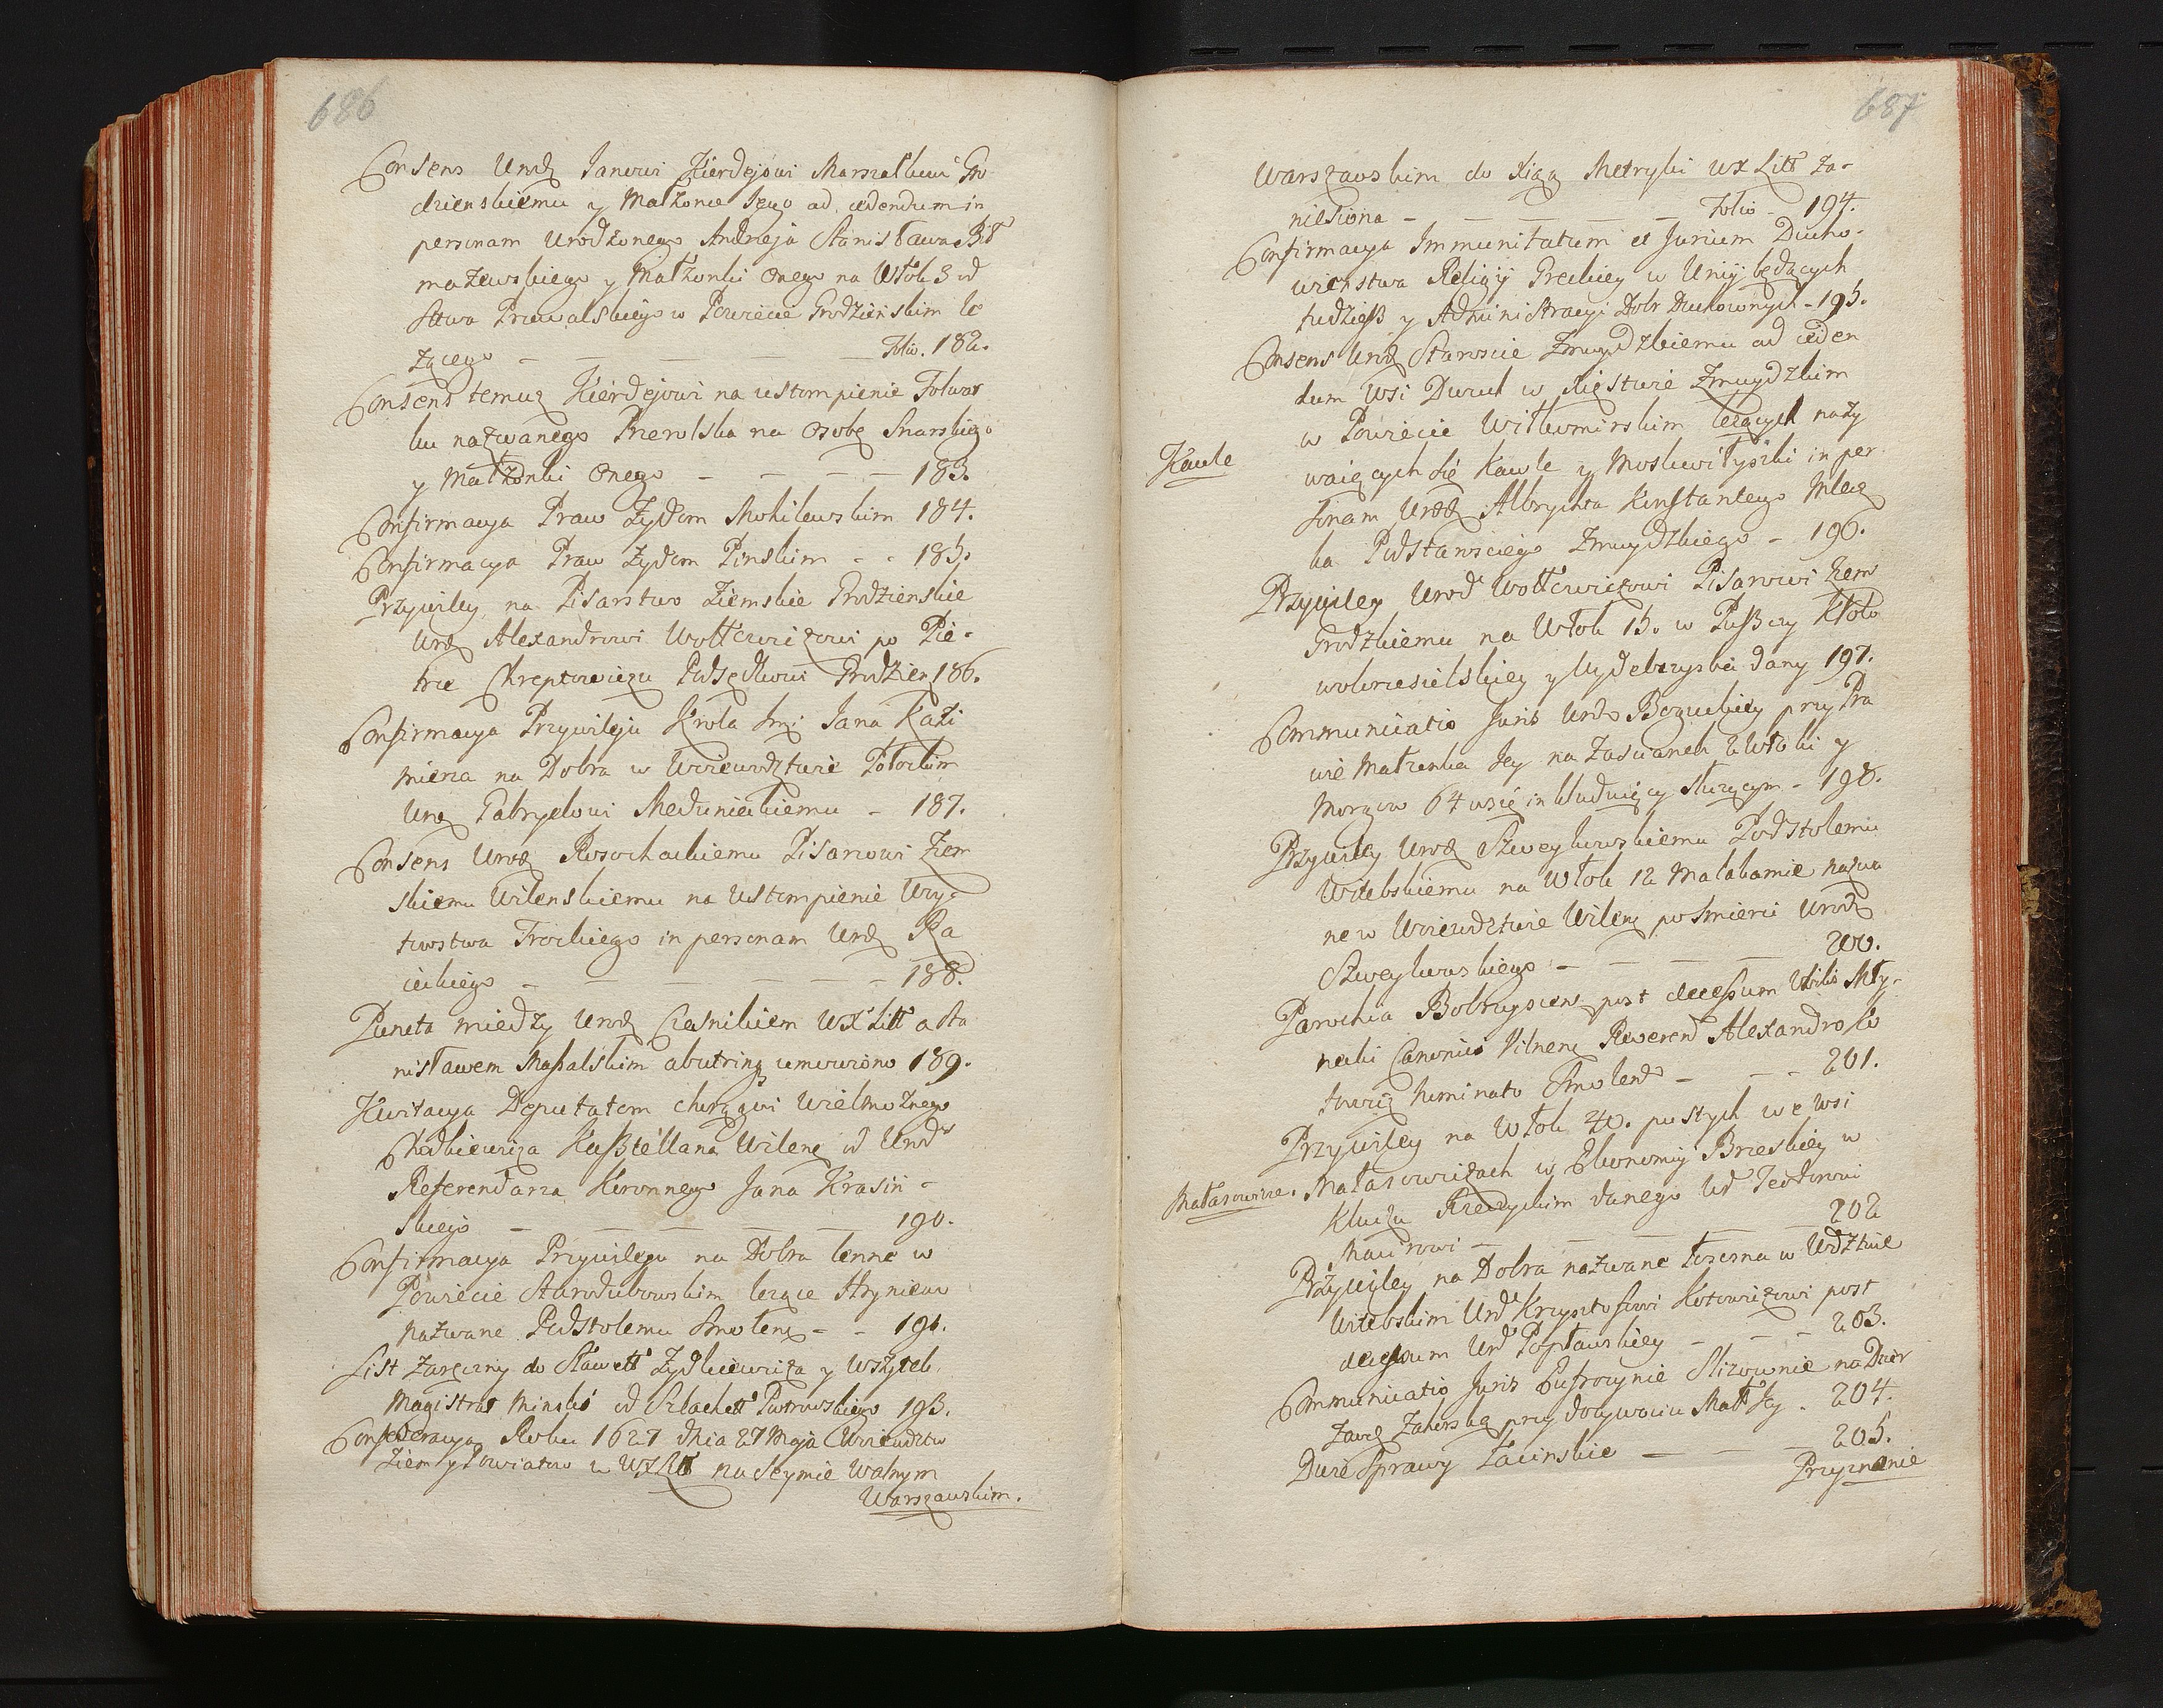 686
Consens Urodz Janowi Kierdejowi Marszałkowi Gro-
dzienskiemu y Małżonce Jego ad cedendum in
personam Urodzonego Andrzeja Stanisława Bił
mazewskiego y Małżonki Onego na Włok 3 od
Sttwa Przewalskiego w Powiecie Grodzieńskim le
żącego — — — — — Folio. 182.
Consens temuz Kierdejowi na ustompienie Folwar
ku nazwanego Przewolska na Osobę Snarskiego
y Małżonki Onego — — — — 183.
Confirmacya Praw Zydom Mohilewskim 184.
Confirmacya Praw Zydom Pinskim - - 185.
Przywiley na Pisarstwo Ziemskie Grodzienskie
Urodz Alexandrowi Wołłowiczowi po Pie-
trze Chreptowiczu Podsędkowi Grodzien 186.
Confirmacya Przywileju Krola Jmci Jana Kazi
mierza na Dobra w Woiewodztwie Połockim
Urodz Gabryelowi Meduneckiemu - 187.
Consens Urodz Rosochackiemu Pisarzowi Ziem
skiemu Wilenskiemu na Ustompienie Woy-
towstwa Trockiego in personam Urodz Ra
ieckiego — — — — — — 188.
Puncta między Urodz Czesnikiem WX Litt a Sta
nisławem Massalskim abutrinq umowiono 189.
Kwitacya Deputatom chorągwi Wielmożnego
Chodkiewicza Kasztellana Wilenz od Urod
Referendarza Koronnego Jana Krasiń-
skiego — — — — — 190.
Confirmacya Przywilegu na Dobra lenne w
Powiecie Starodubowskim leżące Hryniewo
nazwane Podstolemu Smolenz - - 191.
List Zaręczny do Sławett Zydkiewicza y Wszytek
Magistrat Minski od Szlachett Piotrowskiego 193.
Confederacya Roku 1627 dnia 27 Maja Woiewodztw
Ziem y Powiatow w WXLitt na Seymie Walnym
Warszawskim.
687
Warszawskim do Xiąg Metryki WX Litt za-
niesiona — — — — Folio - 194.
Confirmacya Immunitatum et Jurium Ducho-
wieństwa Religij Greckiey w Unij będących
tudzież y Administracyi Dobr Duchownych - 195.
Consens Urodz Staroscie Zmuydzkiemu ad ceden
dum Wsi Dwuch w Xięstwie Zmuydzkim
w Powiecie Wiłkomirskim leżących nazy
Kawle
waiących się Kawle y Moskwityszki in per
sonam Urodz Albrychta Konstantego Mlecz
ka Podstarosciego Zmuydzkiego - 196.
Przywiley Urod Wołłowiczowi Pisarzowi Ziem
Grodzkiemu na Włok 15. w Puszczy Kłoto
wokrzesielskiey y Wydebrzyska dany 197.
Communicatio Juris Urod Boguckiey przy Pra
wie Małżonka Jey na Zascianek 2 Włoki y
Morgow 64 wsię inkluduięcy służącym - 198.
Przywiley Urodz Szweykowskiemu Podstolemu
Witebskiemu na Włok 12 Malakamie nazwa
ne w Woiewodztwie Wilenz po Smierci Urodz
Szweykowskiego — — — — 200.
Parochia Bobruyscens post decessum Utilis Mły-
necki Canonici Vilnenz Reverend Alexandro Ko
towicz Nominato Smolend - - - 201.
Przywiley na Włok 40. pustych we Wsi
Małasowiczach w Ekonomij Brzeskiey w
Małasowicze.
Kluczu Rzeczyckim danego Ur Teodorowi
Maurowi — — — — 202
Przywiley na Dobra nazwane Łosesna w Wdztwie
Witebskim Urod Krzysztofowi Kotowiczowi post
decessum Urod Popławskiey - - - 203.
Communicatio Juris Eufrozynie Slizownie na Dzier
zawę Zahorską przy dożywociu Małż Jey - 204.
Dwie Sprawy Łacinskie — — — 205.
Przyznanie